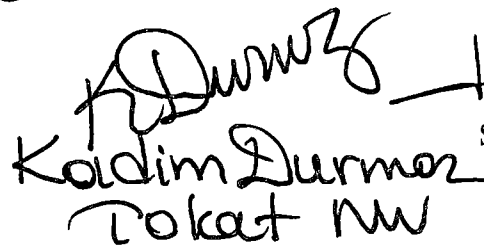 K Durmaz
Kadim Durmaz
Tokat MV